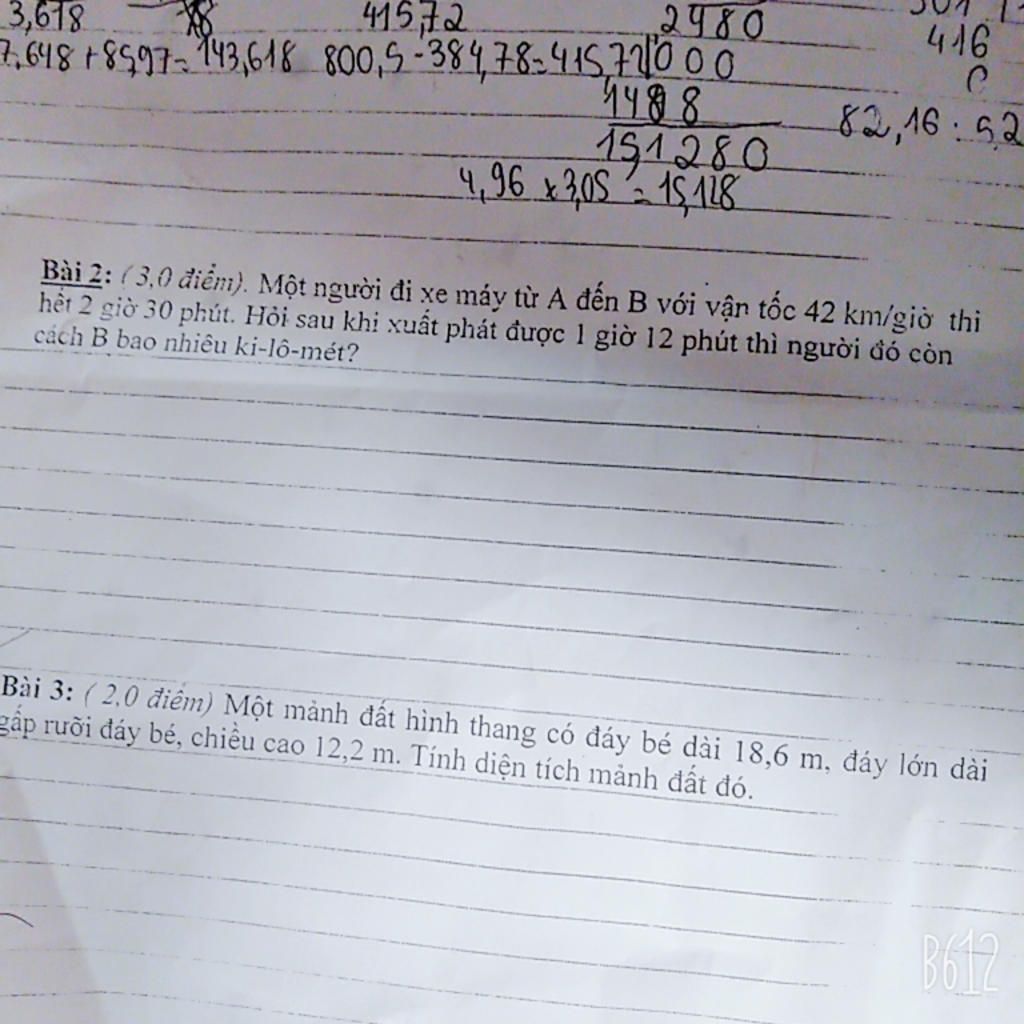 3,618 415,72 2480
416
7,648 + 85,97 = 143,618 800,5 - 384,78 = 415,72 0000
0
1488 82,16 : 5,2
15,1280
4,96 x 3,05 = 15,128
Bài 2: ( 3,0 điểm). Một người đi xe máy từ A đến B với vận tốc 42 km/giờ thì
hết 2 giờ 30 phút. Hỏi sau khi xuất phát được 1 giờ 12 phút thì người đó còn
cách B bao nhiêu ki-lô-mét?
Bài 3: ( 2,0 điểm) Một mảnh đất hình thang có đáy bé dài 18,6 m, đáy lớn dài
gấp rưỡi đáy bé, chiều cao 12,2 m. Tính diện tích mảnh đất đó.
B612